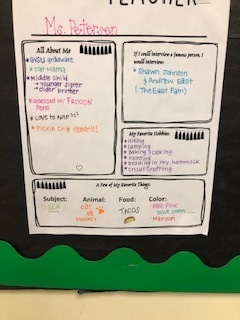 TEACHER
Ms. Petersen
All About Me
GVSU graduate
Cat Mama
Middle Child
→ younger sister
→ older brother
Obsessed w/ FLAXION
Pens
LOVE to NAP zzz
Pickle chip fanatic!
If I could interview a famous person, I would
interview:
Shawn Johnson
& Andrew East
(The East Fam)
My Favorite Hobbies:
Hiking
Camping
Baking & Cooking
Painting
Reading in my hammock
Cricut Crafting
A Few of My Favorite Things:
Subject:
Animal:
Food:
Color:
ELA
Cat
or
Monkey
TACOS
Pale Pink
olive green
Maroon